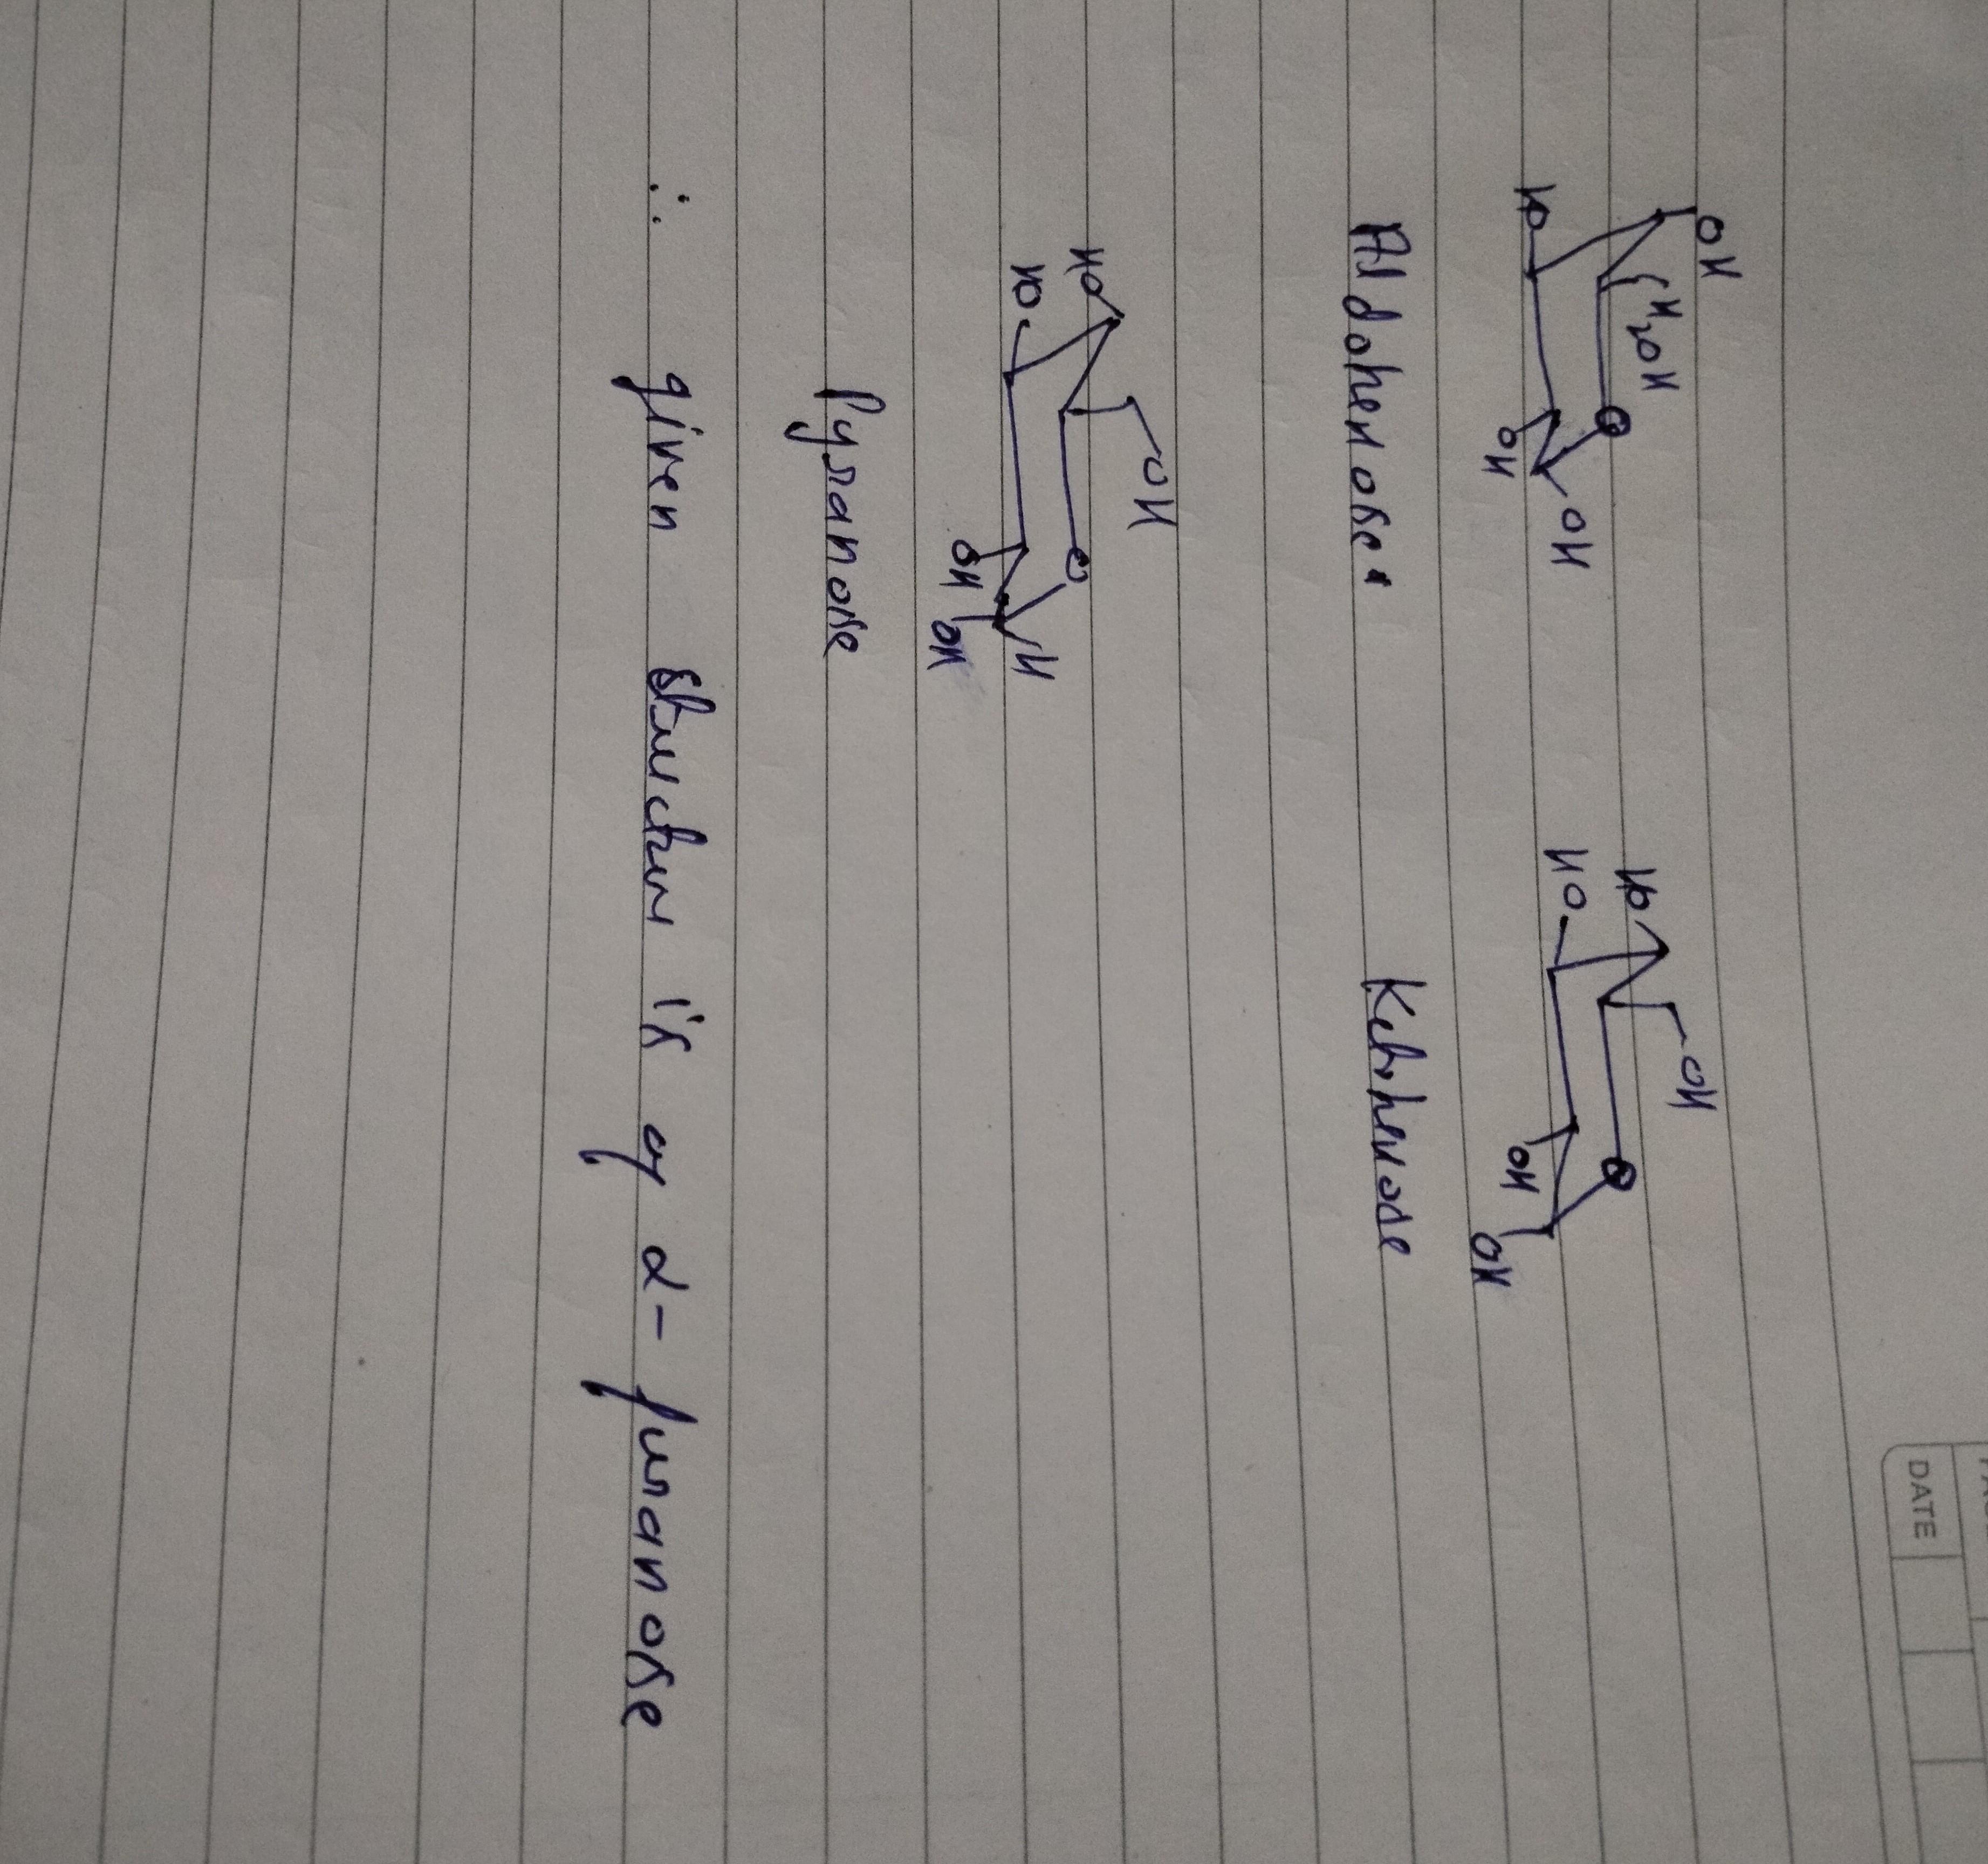 PAGE
DATE
OH
CH2OH
O
HO
OH
OH
OH
HO
HO
O
OH
OH
Aldohexose
Ketohexose
OH
HO
HO
O
H
OH
OH
Pyranose
∴ given structure is of α- furanose